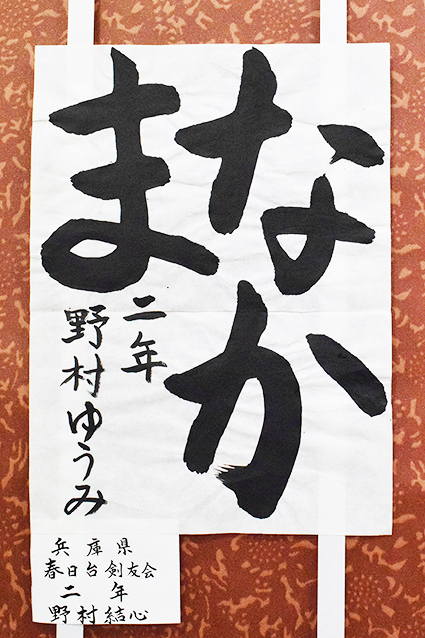 なか
ま
二年
野村ゆうみ
兵庫県
春日台剣友会
二年
野村結心